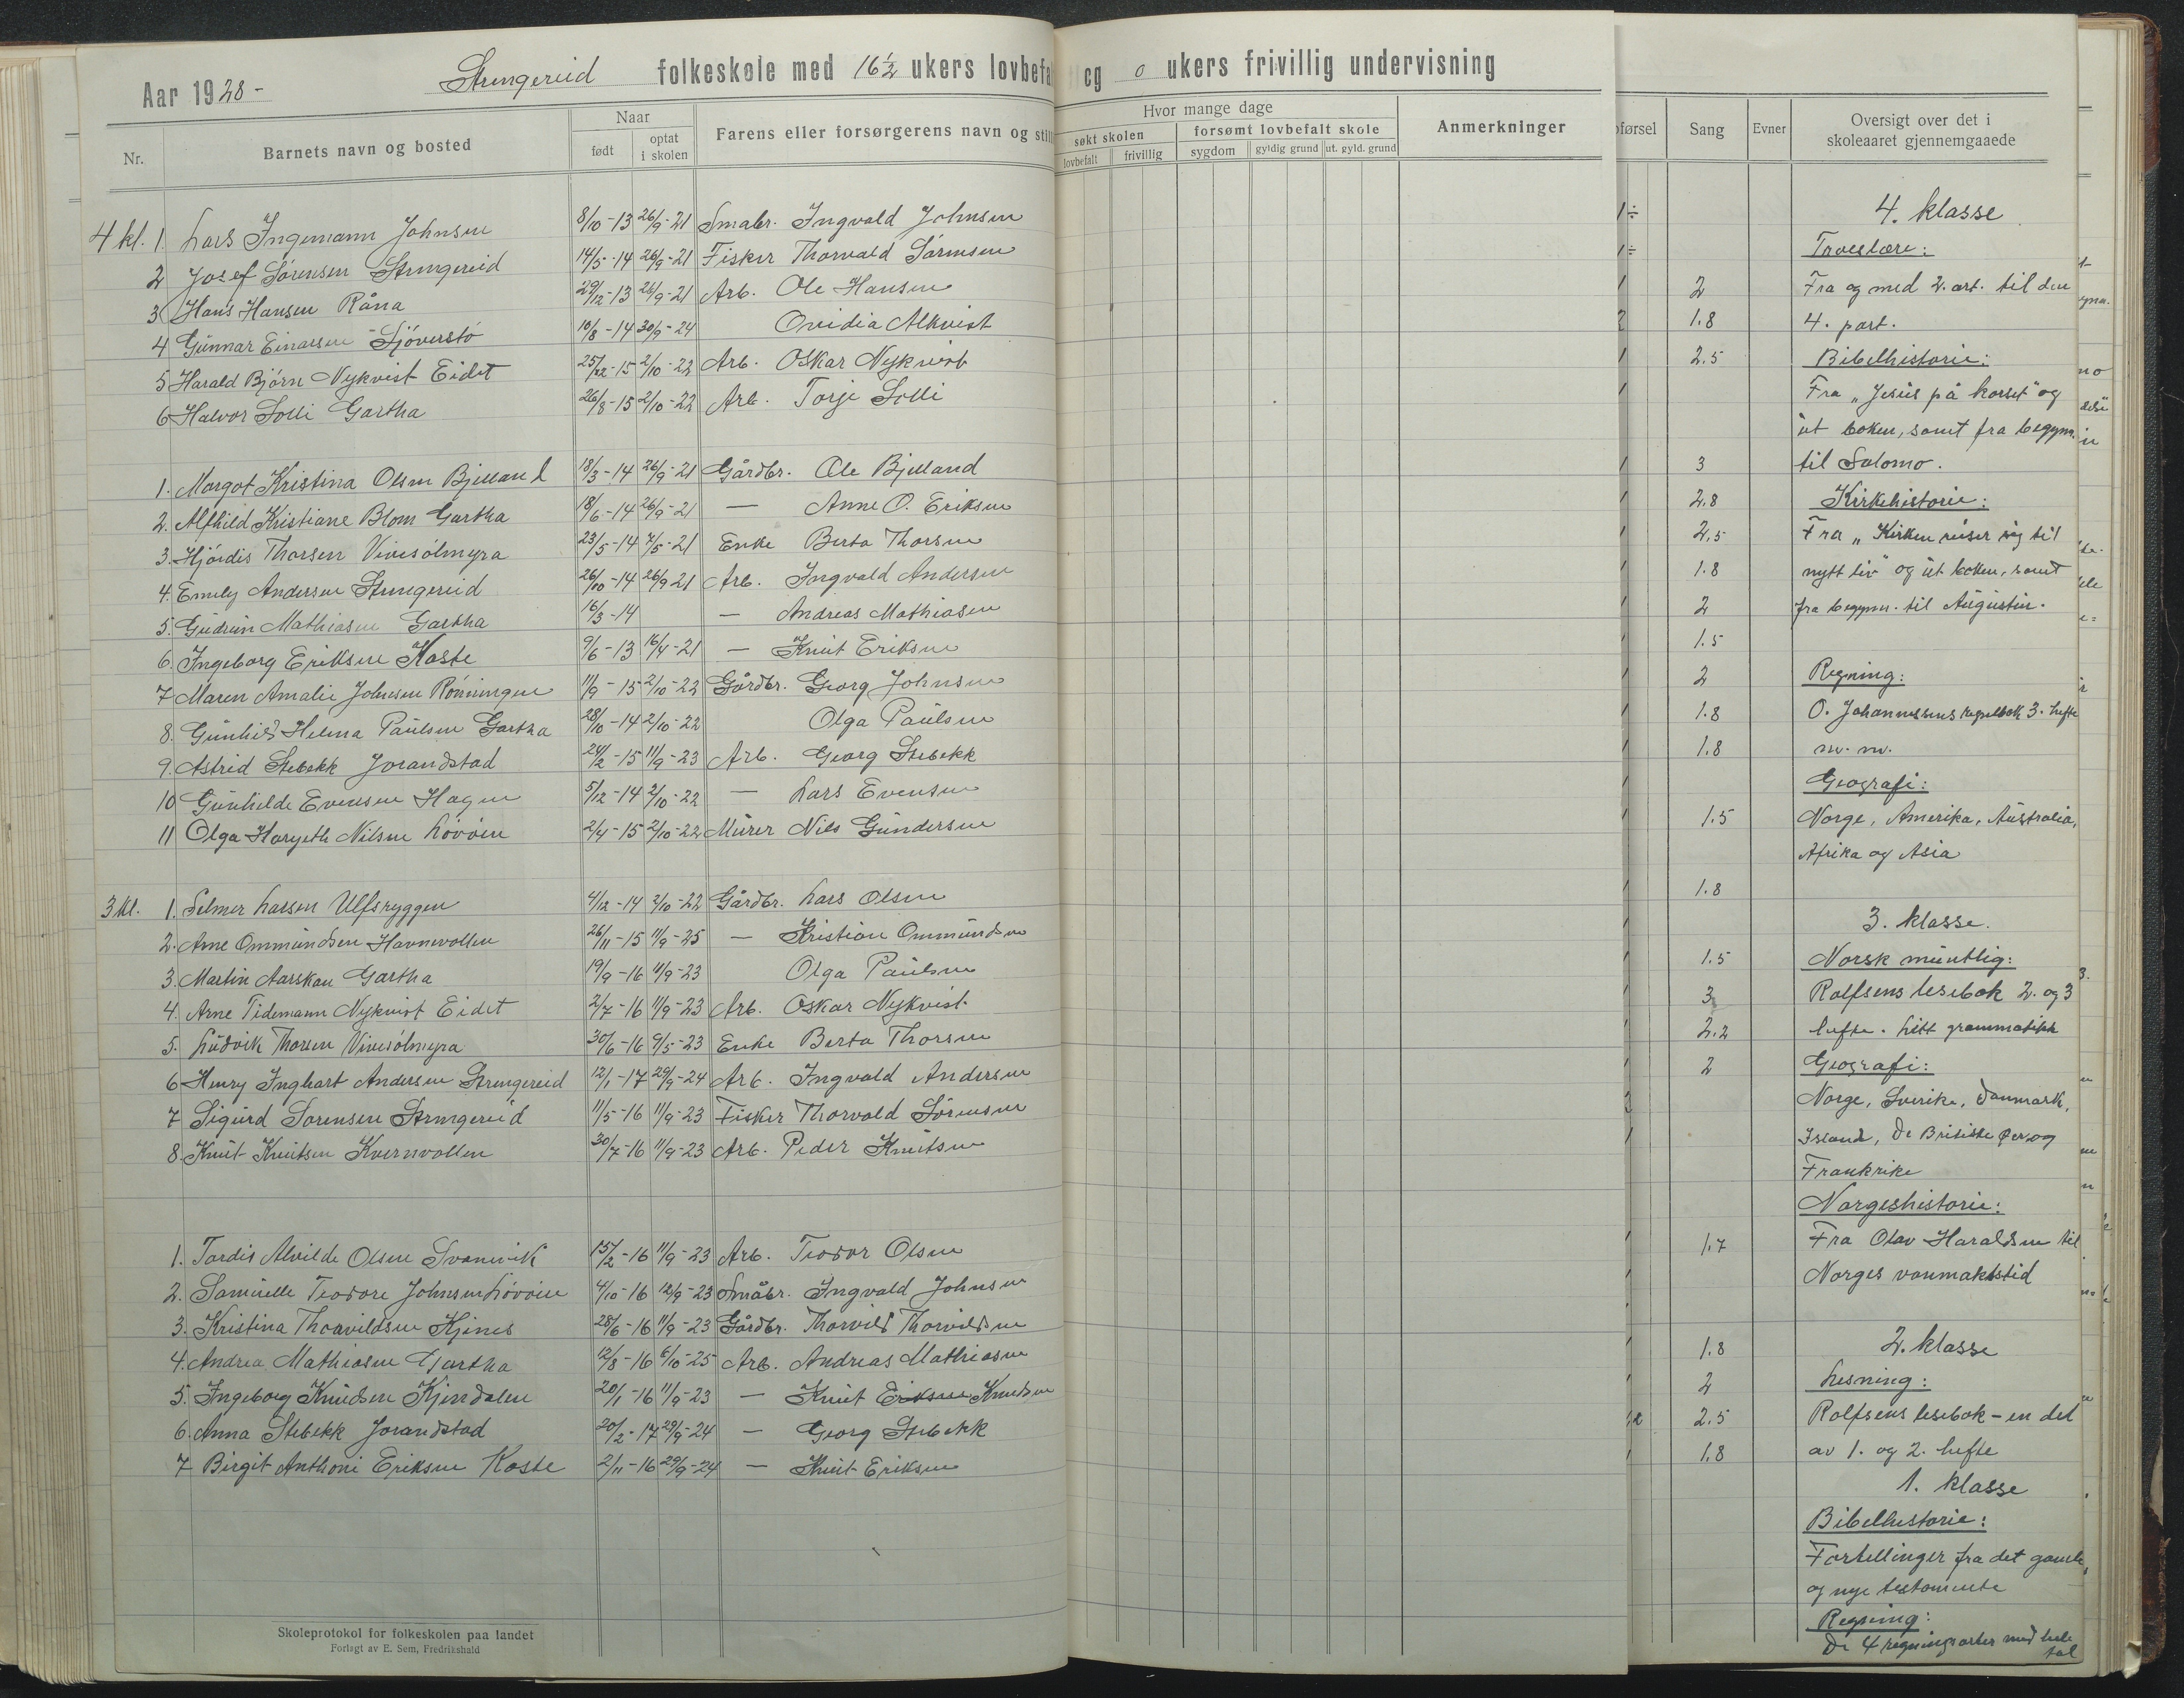 Aar 1928 - Strengereid folkeskole med 16½ ukers lovbefa og 0 ukers frivillig undervisning
Nr. Barnets navn og bosted Naar født optat i skolen Farens eller forsørgerens navn og still
Hvor mange dage søkt skolen lovbefalt frivillig forsømt lovbefalt skole sygdom gyldig grund ut. gyld. grund Anmerkninger
førsel Sang Evner Oversigt over det i skoleaaret gjennemgaaede
4 kl. 1. Lars Ingemann Johnsen 8/10-13 26/9-21 Småbr. Ingvald Johnsen
2 Josef Sørensen Strengereid 14/5-14 26/9-21 Fisker Thorvald Sørensen
3 Hans Hansen Råna 29/12-13 26/9-21 Arb. Ole Hansen
4 Gunnar Einarsen Sjöverstö 10/8-14 30/9-24 Ovidia Alkvist
5 Harald Bjørn Nykvist Eidet 25/12-15 2/10-22 Arb. Oskar Nykvist
6 Halvor Solli Gartha 26/8-15 2/10-22 Arb. Torje Solli
1. Margot Kristina Olsen Bjelland 18/3-14 26/9-21 Gårdbr. Ole Bjelland
2. Alfhild Kristiane Blom Gartha 18/6-14 26/9-21 — Anne O. Eriksen
3. Hjördis Thorsen Vivesölmyra 23/5-14 7/5-21 Enke Berta Thorsen
4. Emely Andersen Strengereid 26/10-14 26/9 21 Arb. Ingvald Andersen
5. Gudrun Mathiasen Gartha 16/3-14 — Andreas Mathiasen
6. Ingeborg Eriksen Kaste 9/6-13 16/4-21 — Knut Eriksen
7 Maren Amalie Johnsen Rönningen 11/9-15 2/10-22 Gårdbr. Georg Johnsen
8. Gunhild Helma Paulsen Gartha 28/10-14 2/10-22 Olga Paulsen
9. Astrid Stebekk Jorandstad 24/2-15 11/9-23 Arb. Georg Stebekk
10 Gunhilde Evensen Hagen 5/12-14 2/10-22 — Lars Evensen
11 Olga Hargeth Nilsen Lövöen 2/4-15 2/10-22 Murer Nils Gundersen
3 kl. 1. Selmer Larsen Ulfsryggen 4/12-14 2/10-22 Gårdbr. Lars Olsen
2. Arne Ommundsen Havnevollen 26/11-15 11/9-25 — Kristian Ommundsen
3. Martin Aarskau Gartha 19/9-16 11/9-23 Olga Paulsen
4. Arne Tidemann Nykvist Eidet 2/7-16 11/9-23 Arb. Oskar Nykvist
5. Ludvik Thorsen Vivesölmyra 30/6-16 9/5-23 Enke Berta Thorsen
6 Henry Inghart Andersen Strengereid 12/1-17 29/9-24 Arb. Ingvald Andersen
7 Sigurd Sørensen Strengereid 11/5-16 11/9-23 Fisker Thorvald Sörensen
8. Knut Knutsen Kvernvollen 30/7-16 11/9-23 Arb. Peder Knutsen
1. Tordis Alvilde Olsen Svanvik 15/2-16 11/9-23 Arb. Teodor Olsen
2. Samuelle Teodore Johnsen Lövöen 4/10-16 12/9-23 Småbr. Ingvald Johnsen
3. Kristina Thorvildsen Kjenes 28/6-16 11/9-23 Gårdbr. Thorvild Thorvildsen
4. Andrea Mathiasen Gartha 12/8-16 6/10-25 Arb. Andreas Mathiasen
5. Ingeborg Knudsen Kjendalen 20/1-16 11/9-23 — Knut Eriksen Knudsen
6. Anna Stebekk Jorandstad 20/2-17 29/9-24 — Georg Stebekk
7 Birgit Anthoni Eriksen Kaste 2/11-16 29/9-24 — Knut Eriksen
Skoleprotokol for folkeskolen paa landet
Forlagt av E. Sem, Fredrikshald
2
1.8
2.5
3
2.8
2.5
1.8
2
1.5
2
1.8
1.8
1.5
1.8
1.5
3
2.2
2
1.7
1.8
2
2.5
1.8
4. klasse
Troeslære:
Fra og med 2. art. til den
4. part.
Bibelhistorie:
Fra "Jesus på korset" og
ut boken, samt fra begynn.
til Salomo.
Kirkehistorie:
Fra "Kirken reiser sig til
nytt liv" og ut boken, samt
fra begynn. til Augustin.
Regning:
O. Johannessens regnebok 3. hefte
m. m.
Geografi:
Norge, Amerika, Australia,
Afrika og Asia
3. klasse.
Norsk muntlig:
Rolfsens lesebok 2. og 3
hefte. Litt grammatikk
Geografi:
Norge, Sverike, Danmark,
Island, De Britiske øer og
Frankrike
Norgeshistorie:
Fra Olav Haraldsen til
Norges vanmaktstid
2. klasse
Lesning:
Rolfsens lesebok - en del
av 1. og 2. hefte
1. klasse
Bibelhistorie:
Fortellinger fra det gamle
og nye testamente
Regning:
De 4 regningsarter med hele
tal